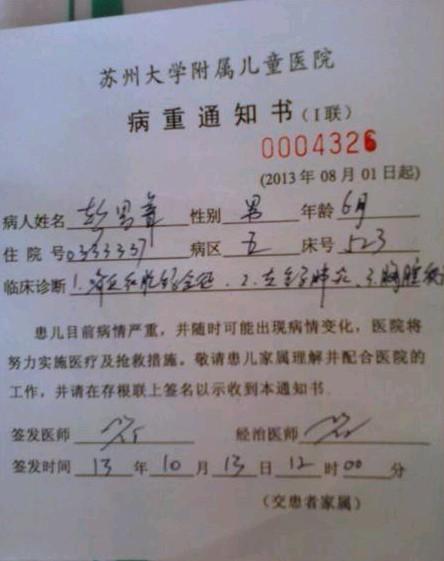 苏州大学附属儿童医院
病重通知书(I联)
0004326
(2013年08月01日起)
病人姓名 彭 性别 男 年龄 6月
住院号0333337 病区 五 床号 523
临床诊断 1. 2. 肺炎 3.胸腔
患儿目前病情严重,并随时可能出现病情变化,医院将
努力实施医疗及抢救措施。敬请患儿家属理解并配合医院的
工作,并请在存根联上签名以示收到本通知书.
签发医师 经治医师
签发时间 13 年 10 月 13 日 12 时 00 分
(交患者家属)